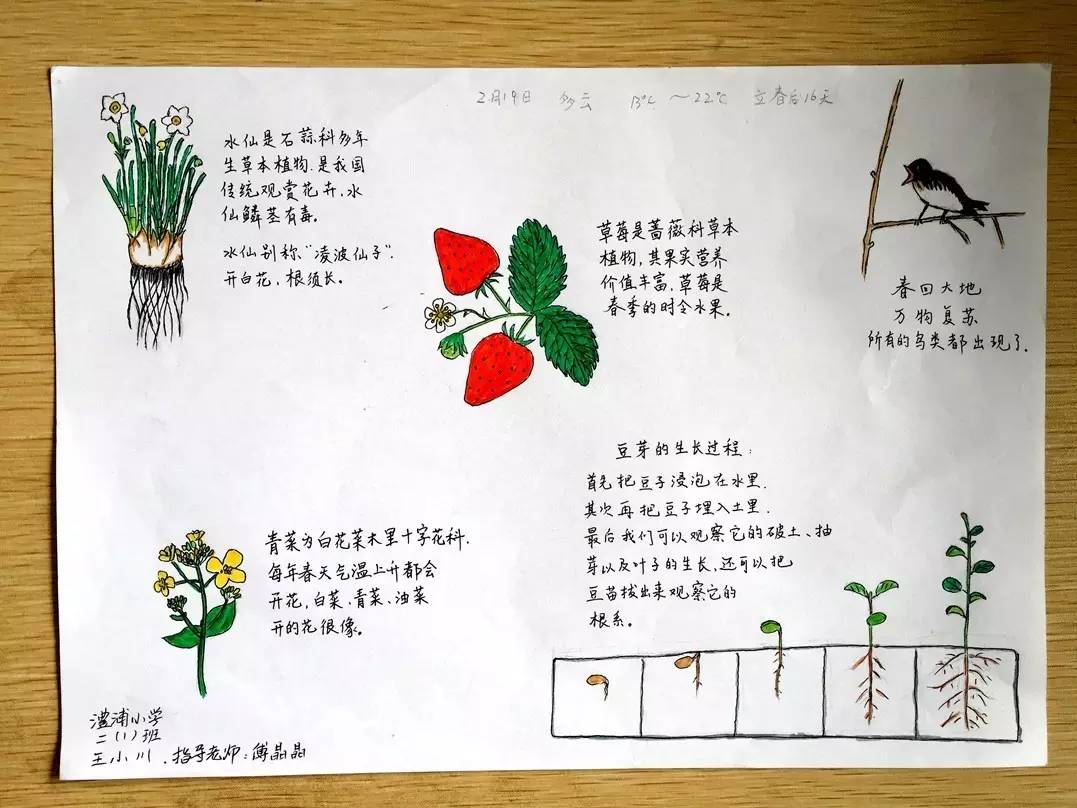 2月19日 多云 13℃ ～22℃ 立春后16天
水仙是石蒜科多年
生草本植物.是我国
传统观赏花卉,水
仙鳞茎有毒。
水仙别称"凌波仙子".
开白花,根须长。
草莓是蔷薇科草本
植物,其果实营养
价值丰富,草莓是
春季的时令水果。
春回大地
万物复苏
所有的鸟类都出现了.
豆芽的生长过程:
首先把豆子浸泡在水里.
其次再把豆子埋入土里.
最后我们可以观察它的破土、抽
芽以及叶子的生长,还可以把
豆苗拔出来观察它的
根系。
青菜为白花菜木里十字花科.
每年春天气温上升都会
开花,白菜、青菜、油菜
开的花很像。
澧浦小学
二(1)班
王小川.指导老师:傅晶晶